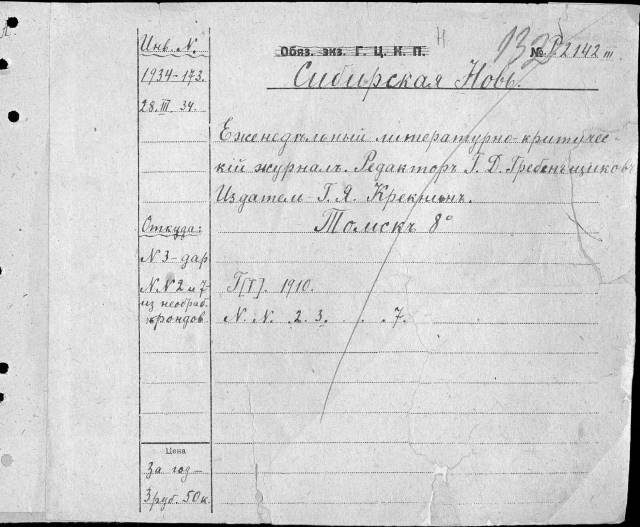 Инв. N.
1934-173.
28.III.34.
Обяз. экз. Г. Ц. К. П.
Н
132
№ P2142 m
Сибирская Новь.
Еженедѣльный литературно-критичес-
кій журналъ. Редакторъ Г. Д. Гребенщиковъ
Издатель Г. Я. Крекнинъ.
Томскъ 8°
Откуда:
N 3 - дар
N.N 2 и 7
из необраб.
фондов.
Г[I]. 1910.
N. N. 2. 3. . . 7.
Цена
За год-
3 руб. 50 к.